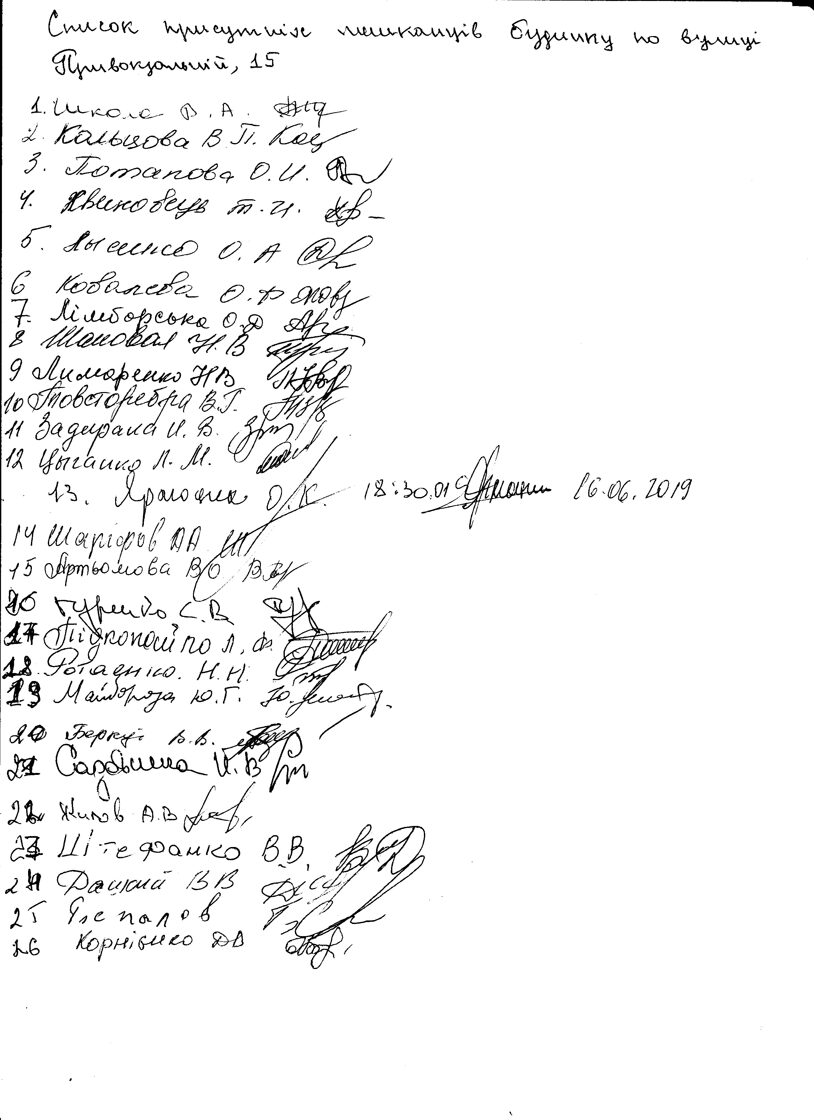 Список присутніх мешканців будинку по вулиці
Привокзальній, 15
1. Школа В. А.
2. Кольцова В.П. Кол
3. Потапова О.И.
4. Явиновець Т.И.
5. Лысенко О. А
6 Ковалева О.Ф
7. Лімборська О.Д
8 Шаповал Н.В
9 Лимаренко Н В
10 Товсторебра В.Г.
11 Задирака И. В.
12 Цыганко Л. М.
13. О.К. 18:30 16.06.2019
14 Шаріфов ДА
15 Артьомова ВО
16 Гуренко С.В.
17 Підкопайло Л. Ф.
18 Ротаенко. Н.Н.
19 Майборода Ю.Г.
20 Беркут В.В.
21 И.В
22 Жилов А.В
23 Штефанко В.В.
24 Дацкий В В
25 Беспалов
26 Корнієнко ДВ